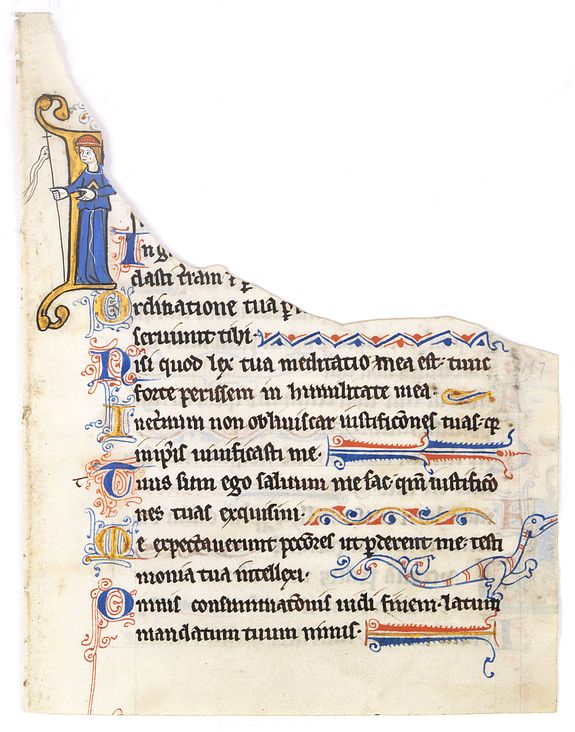 In g
dasti t̄ram ⁊ p
Ordinatione tua p
seruiunt tibi·
Nisi quod lex tua meditatio mea est· tunc
forte perissem in humilitate mea·
Inet̄num non obliuiscar iustificōnes tuas· q̄
in ip̄is uiuificasti me·
Tuus sum ego saluum me fac· qm̄ iustifico
nes tuas exquisiui·
Me expectauerunt pcc̄ores ut ꝑderent me· testi
monia tua intellexi·
Omnis consummatōnis uidi finem· latum
mandatum tuum nimis·